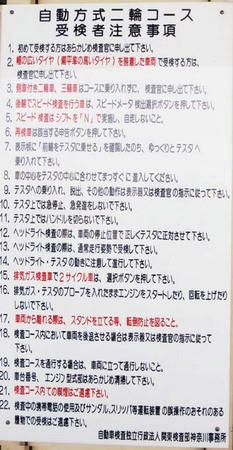 自動方式二輪コース
受検者注意事項
1. 初めて受検する方はあらかじめ検査官に申し出て下さい。
2. 幅の広いタイヤ(扁平率の高いタイヤ)を装着した車両で受検する方は、
検査官に申し出て下さい。
3. 側車付き二輪車、三輪車はコースに乗り入れずに、検査官に申し出て下さい。
4. 後輪でスピード検査を行う車は、スピードメータ検出選択ボタンを押して下さい。
5. スピード検査はシフトを「N」で実施し、自走しないこと。
6. 再検車は該当する申告ボタンを押して下さい。
7. 表示板に「前輪をテスタに乗せる」を確認したのち、ゆっくりとテスタへ
乗り入れて下さい。
8. 車の中心をテスタの中心に合わせてまっすぐに進入してください。
9. テスタへの乗り入れ、脱出、その他の動作は表示器又は検査官の指示に従って下さい。
10. テスタ上では急停止、急発進をしないで下さい。
11. テスタ上ではハンドルを切らないで下さい。
12. ヘッドライト検査の際は、車両の停止位置で正しくテスタに正対させて下さい。
13. ヘッドライト検査の際は、通常走行姿勢で受検して下さい。
14. ヘッドライト・テスタの動きに注意して進行して下さい。
15. 排気ガス検査車で2サイクル車は、選択ボタンを押して下さい。
16. 排気ガス・テスタのプローブを入れたままエンジンをスタートしたり、回転を上げたり
しないで下さい。
17. 車両から離れる際は、スタンドを立てる等、転倒防止を図ること。
18. 検査コース内において車両を後退させる場合は表示器又は検査官の指示に従って
下さい。
19. 検査コースを通行する場合は、車両に立って通行しないこと。
20. 車台番号、エンジン型式部はあらかじめ清掃して下さい。
21. 検査コース内での喫煙はご遠慮下さい。
22. 検査中の携帯電話の使用及びサンダル、スリッパ等運転装置の誤操作のおそれのある
履物での受検はご遠慮下さい。
自動車検査独立行政法人関東検査部神奈川事務所